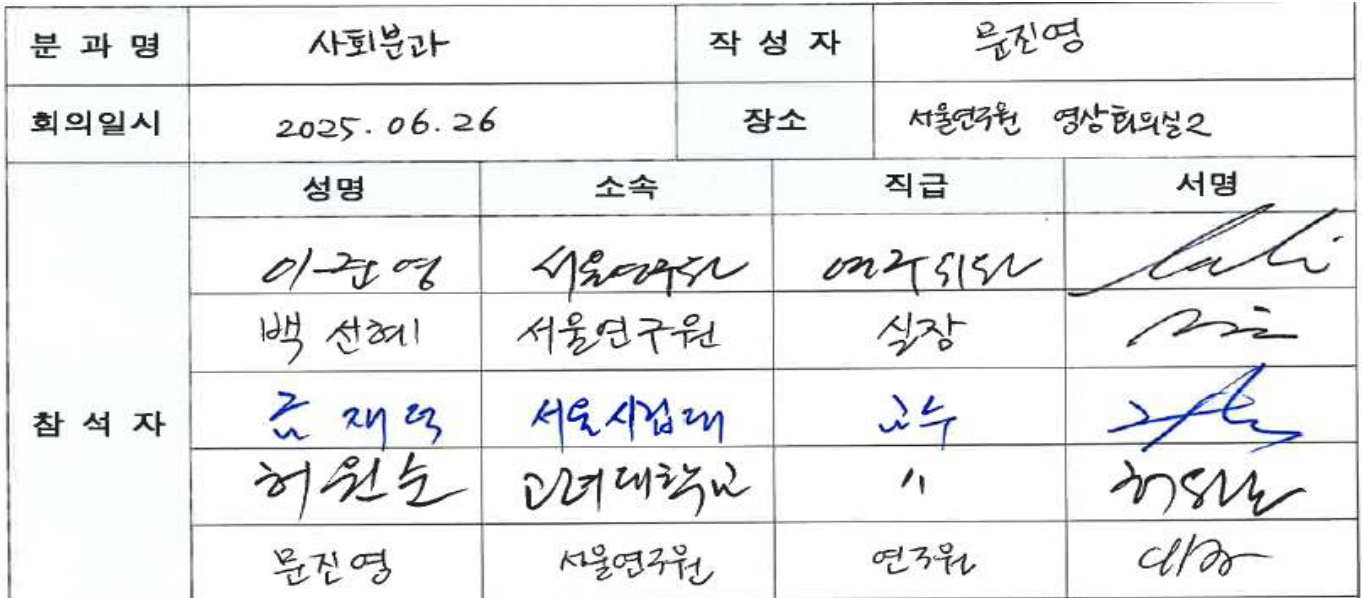 분 과 명 사회분과 작 성 자 문진영
회의일시 2025. 06. 26 장소 서울연구원 영상회의실2
성명 소속 직급 서명
이준영 서울연구원 연구위원
백선혜 서울연구원 실장
참 석 자 금재덕 서울시립대 교수
허원순 고려대학교 〃 허원순
문진영 서울연구원 연구원